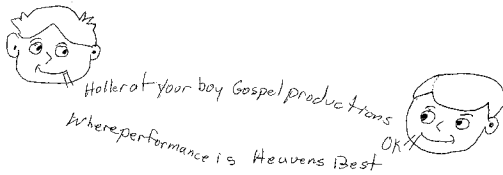 Holler at your boy Gospel productions
Where performance is Heavens Best
OK